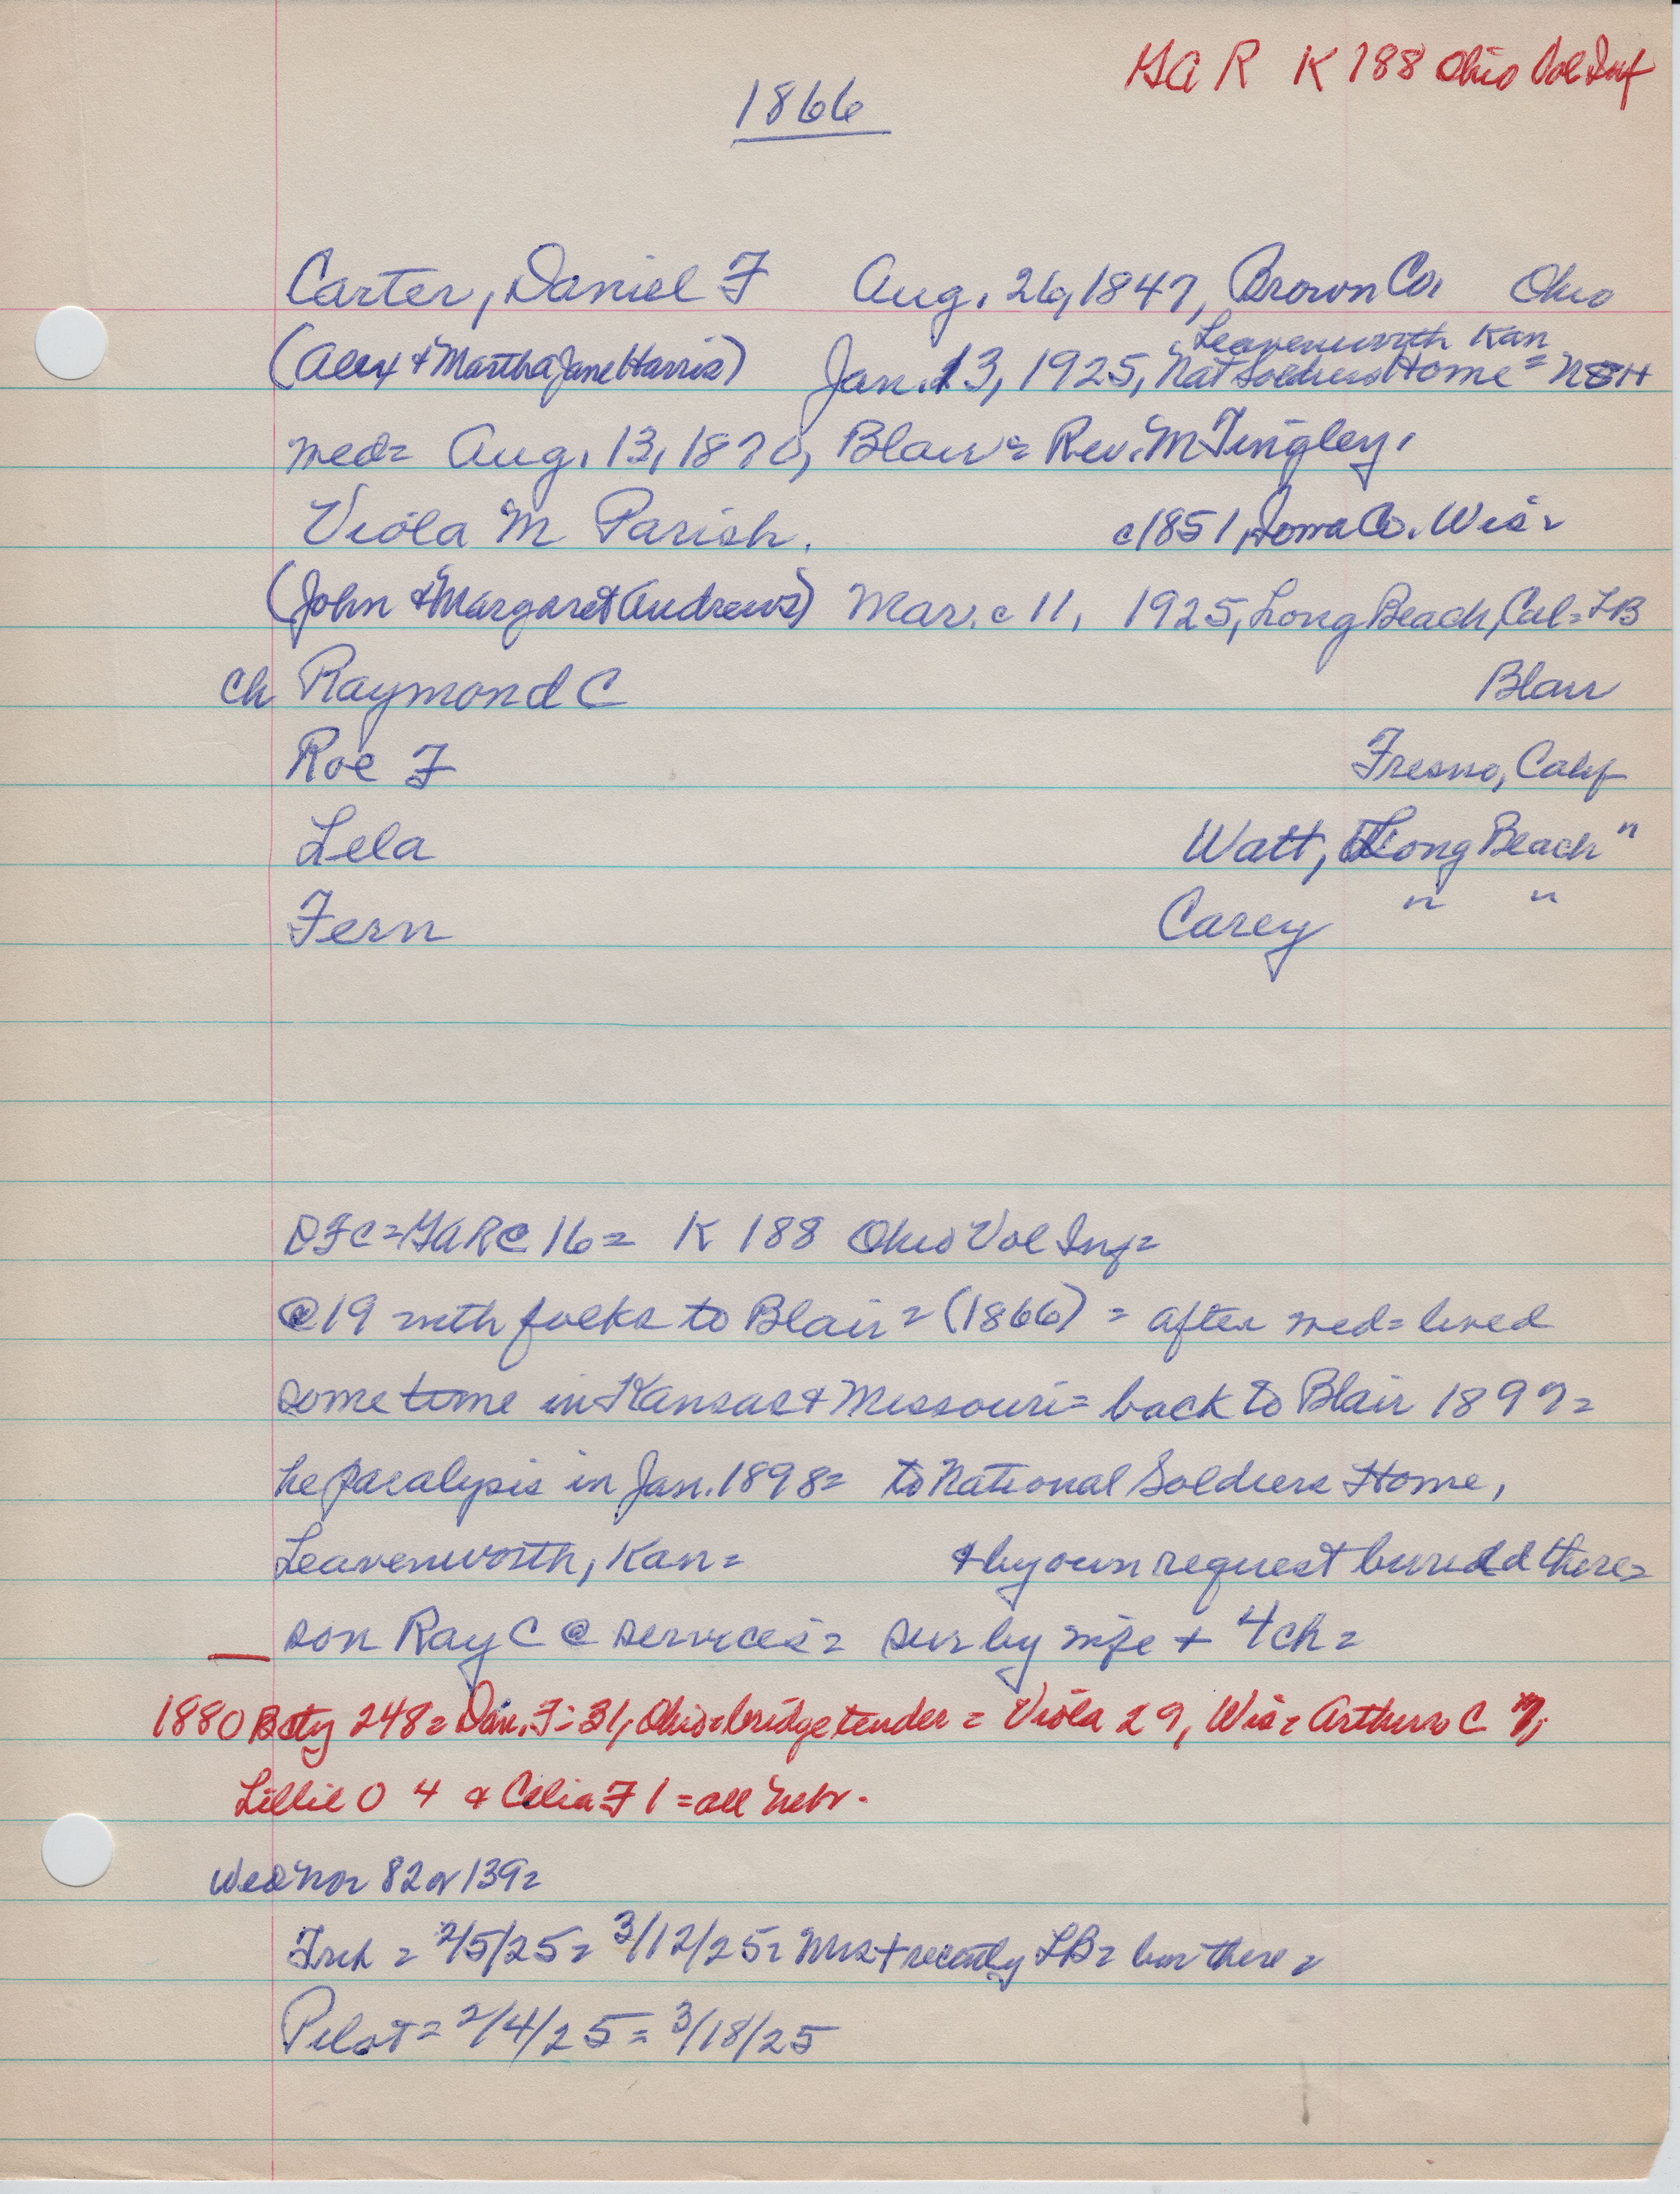 GAR K 188 Ohio Vol Inf
1866
Carter, Daniel F Aug. 26, 1847, Brown Co. Ohio
Leavenworth Kan
(Alex & Martha Jane Harris) Jan. 13, 1925, Nat Soldiers Home = NSH
med= Aug. 13, 1870, Blair = Rev. M Tingley.
Viola M Parish. c1851, Iowa Co. Wis =
(John & Margaret Andrews) Mar. c 11, 1925, Long Beach, Cal = LB
ch Raymond C Blair
Roe F Fresno, Calif
Lela Watt, Long Beach "
Fern Carey " "
DFC = GAR @ 16 = K 188 Ohio Vol Inf =
@ 19 with folks to Blair = (1866) = after med = lived
some time in Kansas & Missouri = back to Blair 1897 =
he paralysis in Jan. 1898 = to National Soldiers Home,
Leavenworth, Kan = & by own request buried there =
son Ray C @ services = sur by wife + 4 ch =
1880 248 = Dan. F = 31, Ohio = bridge tender = Viola 29, Wis = Arthur C 7,
Lillie O 4 & Celia F 1 = all Nebr.
Wed Nor 82 or 139 =
= 2/5/25 = 3/12/25 = Mrs + recently LB = bur there =
Pilot = 2/4/25 = 3/18/25